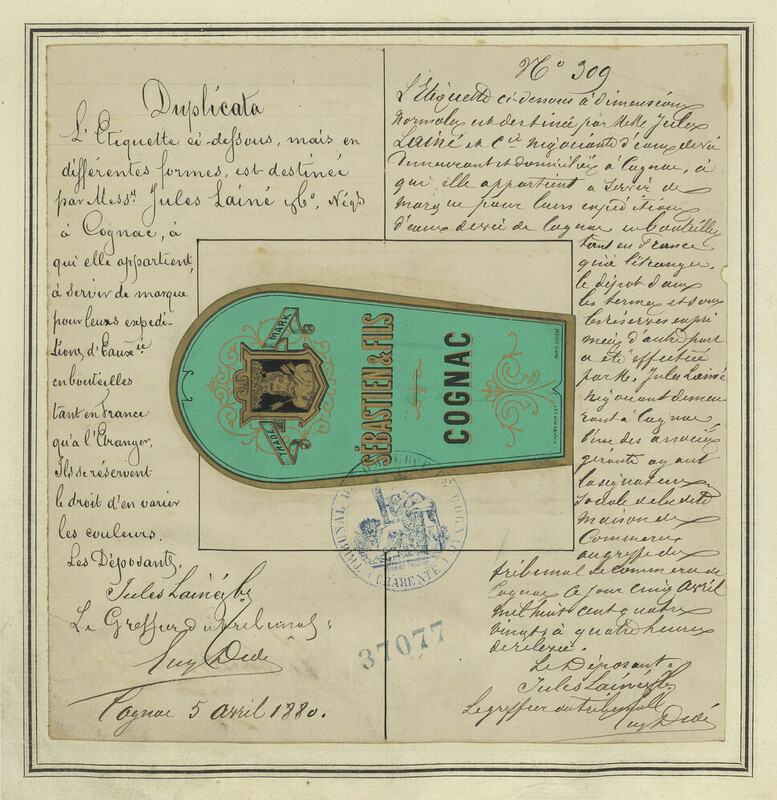 Duplicata
L'Étiquette ci-dessous, mais en
différentes formes, est destinée
par Mess.rs Jules Lainé & Co, Négts
à Cognac, à
qui elle appartient,
à servir de marque
pour leurs expédi-
tions d'Eaux
en bouteilles
tant en France
qu'à l'Etranger.
Ils se réservent
le droit d'en varier
les couleurs.
Les Déposants,
Jules Lainé & Co
Le Greffier du tribunal
Cognac 5 avril 1880.
No 309
L'Étiquette ci-dessous à dimensions
normales est destinée par MM. Jules
Lainé et Cie négociants d'eaux de vie
demeurant et domiciliés à Cognac, à
qui elle appartient à servir de
marque pour leurs expéditions
d'eaux de vie de Cognac en bouteilles
tant en France
qu'à l'étranger.
le dépôt d'aux
les termes et sous
les réserves expri
mées d'autre part
a été effectué
par M. Jules Lainé
négociant demeu
rant à Cognac
l'un des associés
gérants ayant
la signature
sociale de la dite
maison de
Commerce
au greffe du
tribunal de commerce de
Cognac ce jour cinq avril
mil huit cent quatre
vingts à quatre heures
de relevée.
Le Déposant.
Jules Lainé & Co
Le greffier du tribunal
TRADE MARK
SÉBASTIEN & FILS
COGNAC
TRIBUNAL DE COMMERCE DE COGNAC
(CHARENTE)
37077